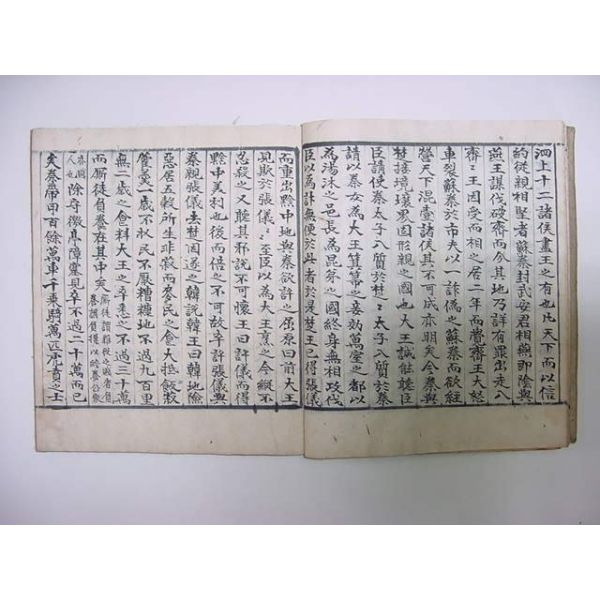 泗上十二諸侯盡王之有也凡天下而以信
約從親相堅者蘇秦封武安君相燕即陰與
燕王謀伐破齊而分其地乃詳有罪出走入
齊〻王因受而相之居二年而覺齊王大怒
車裂蘇秦於市夫以一詐偽之蘇秦而欲經
營天下混壹諸侯其不可成亦明矣今秦與
楚接境壤界固形親之國也大王誠能聽臣
臣請使秦太子入質於楚〻太子入質於秦
請以秦女為大王箕帚之妾效萬室之都以
為湯沐之邑長為昆弟之國終身無相攻伐
臣以為計無便於此者於是楚王已得張儀
而重出黔中地與秦欲許之屈原曰前大王
見欺於張儀〻〻至臣以為大王烹之今縱不
忍殺之又聽其邪說不可懷王曰許儀而得
黔中美利也後而倍之不可故卒許張儀與
秦親張儀去楚因遂之韓說韓王曰韓地險
惡居五穀所生非菽而麥民之食大抵菽
藿羹一歲不收民不厭糟糠地不過九百里
無二歲之食料大王之卒悉之不過三十萬
而廝徒負養在其中矣
除守徼亭障塞見卒不過二十萬而已
矣秦帶甲百餘萬車千乘騎萬匹虎賁之士